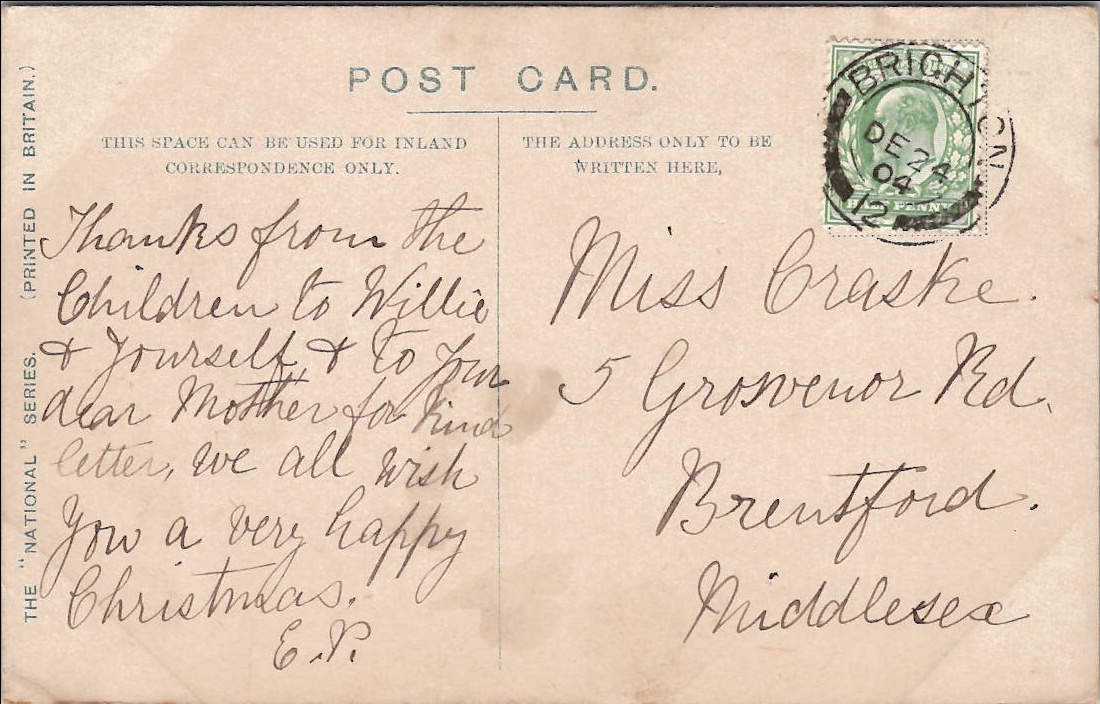 POST CARD.
THIS SPACE CAN BE USED FOR INLAND
CORRESPONDENCE ONLY.
THE ADDRESS ONLY TO BE
WRITTEN HERE,
THE "NATIONAL" SERIES. (PRINTED IN BRITAIN.)
BRIGHTON
DE 24
04
12
PENNY
Thanks from the
Children to Willie
& Yourself, & to Your
dear Mother for kind
letter, we all wish
You a very happy
Christmas.
E.P.
Miss Craske.
5 Grosvenor Rd.
Brentford.
Middlesex